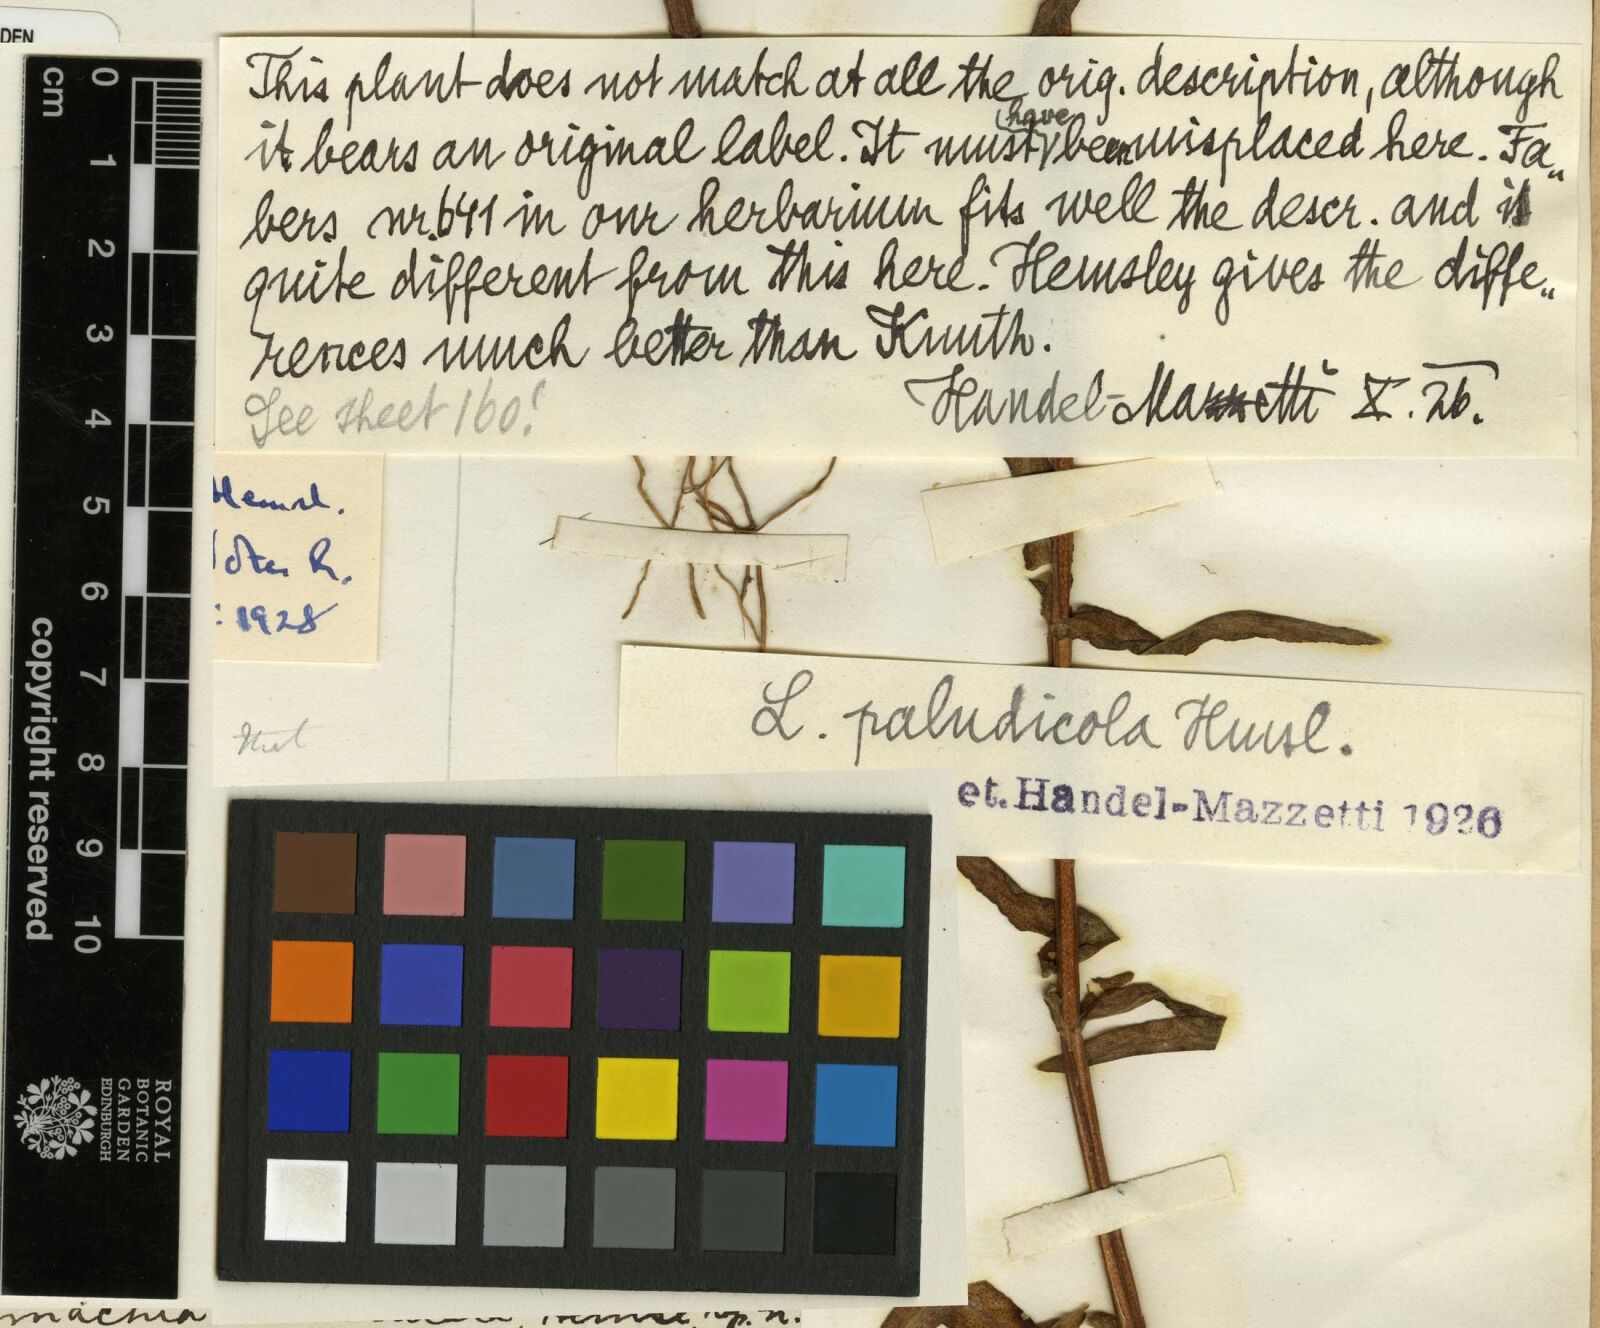 DEN
This plant does not match at all the orig. description, although
it bears an original label. It must have been misplaced here. Fa„
bers nr. 641 in our herbarium fits well the descr. and is
quite different from this here. Hemsley gives the diffe„
rences much better than Knuth.
See sheet 160!
Handel-Mazzetti X. 26.
Hemsl.
R.
: 1928
L. paludicola Hemsl.
et. Handel-Mazzetti 1926
cm 0 1 2 3 4 5 6 7 8 9 10
copyright reserved
ROYAL
BOTANIC
GARDEN
EDINBURGH
machia
sp. n.